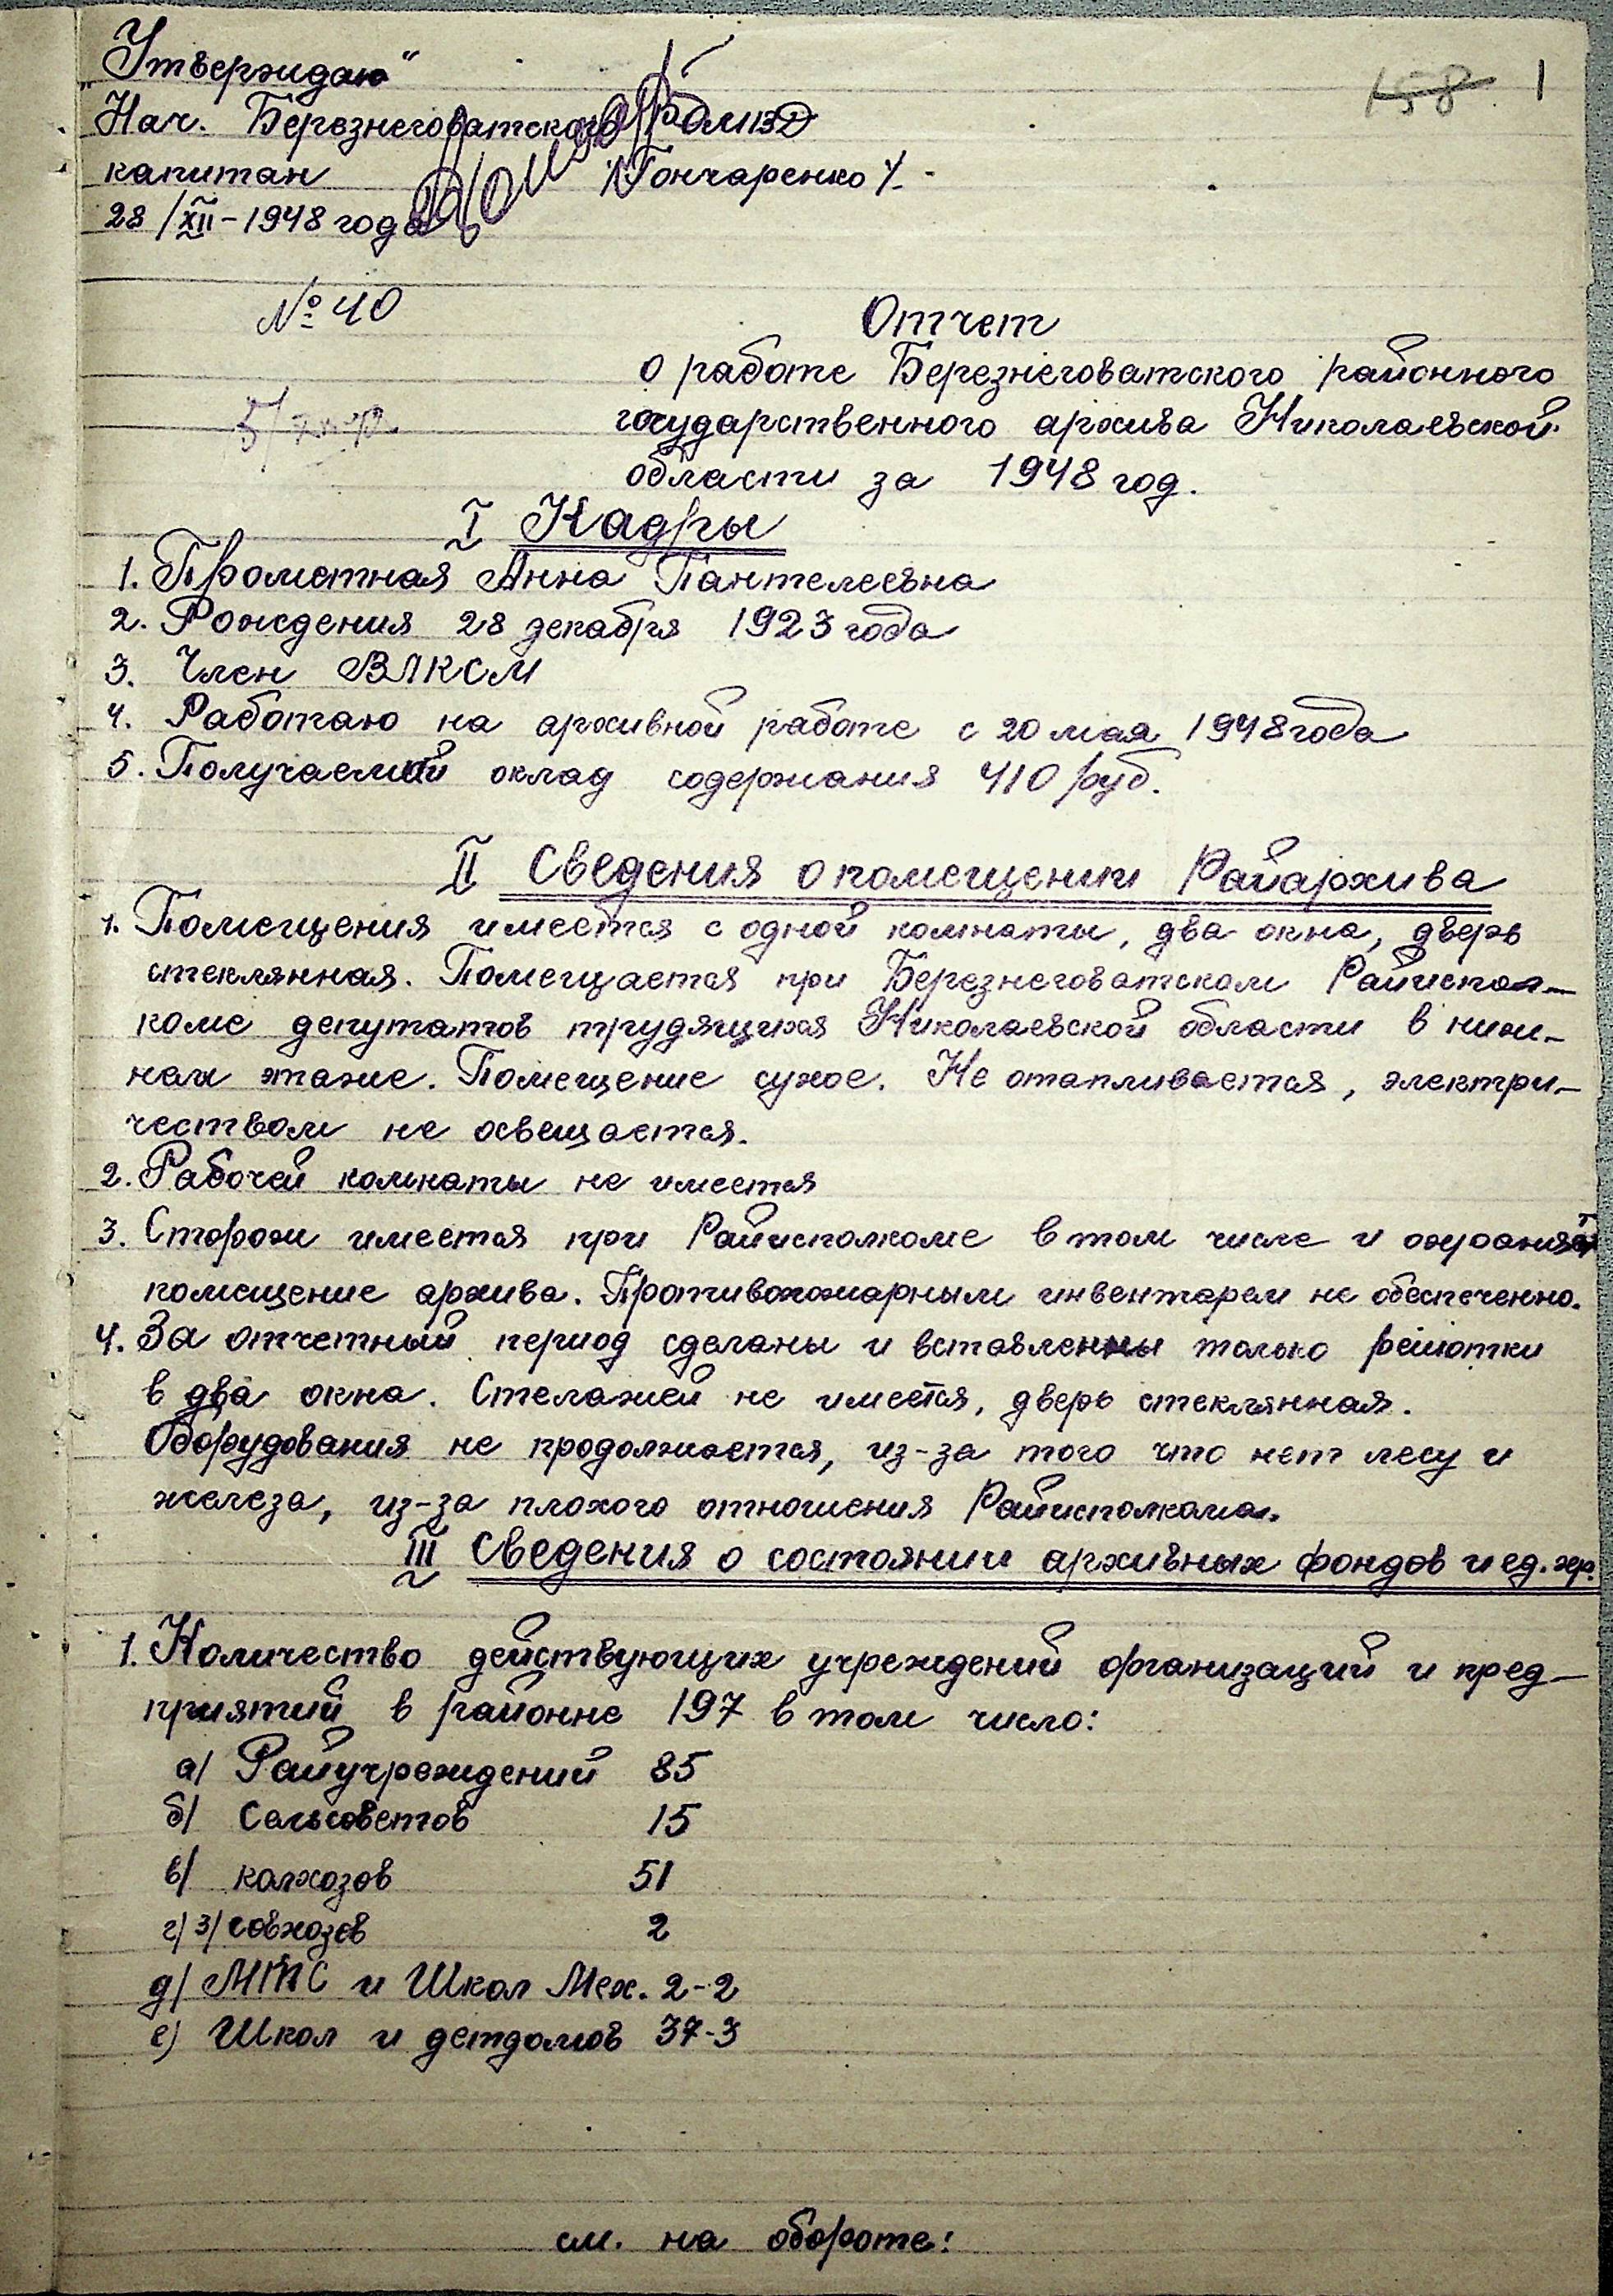 „Утверждаю“
158 1
Нач. Березнеговатского РОМВД
капитан /Гончаренко/.
28/XII-1948 года
№ 40
Отчет
о работе Березнеговатского районного
государственного архива Николаевской
области за 1948 год.
I Кадры
1. Прометная Анна Пантелеевна
2. Рождения 28 декабря 1923 года
3. Член ВЛКСМ
4. Работаю на архивной работе с 20 мая 1948 года
5. Получаемый оклад содержания 410 руб.
II Сведения о помещении Райархива
1. Помещения имеется с одной комнаты, два окна, дверь
стеклянная. Помещается при Березнеговатском Райиспол-
коме депутатов трудящихся Николаевской области в ниж-
нем этаже. Помещение сухое. Не отапливается, электри-
чеством не освещается.
2. Рабочей комнаты не имеется
3. Сторож имеется при Райисполкоме в том числе и охраняет
помещение архива. Противопожарным инвентарем не обеспеченно.
4. За отчетный период сделаны и вставленны только решотки
в два окна. Стелажей не имется, дверь стеклянная.
Оборудования не продолжается, из-за того что нет лесу и
железа, из-за плохого отношения Райисполкома.
III Сведения о состоянии архивных фондов и ед. хр.
1. Количество действующих учреждений организаций и пред-
приятий в районне 197 в том число:
а/ Райучреждений 85
б/ Сельсоветов 15
в/ колхозов 51
г/ з/совхозов 2
д/ МТС и Школ Мех. 2-2
е) Школ и детдомов 37-3
см. на обороте: